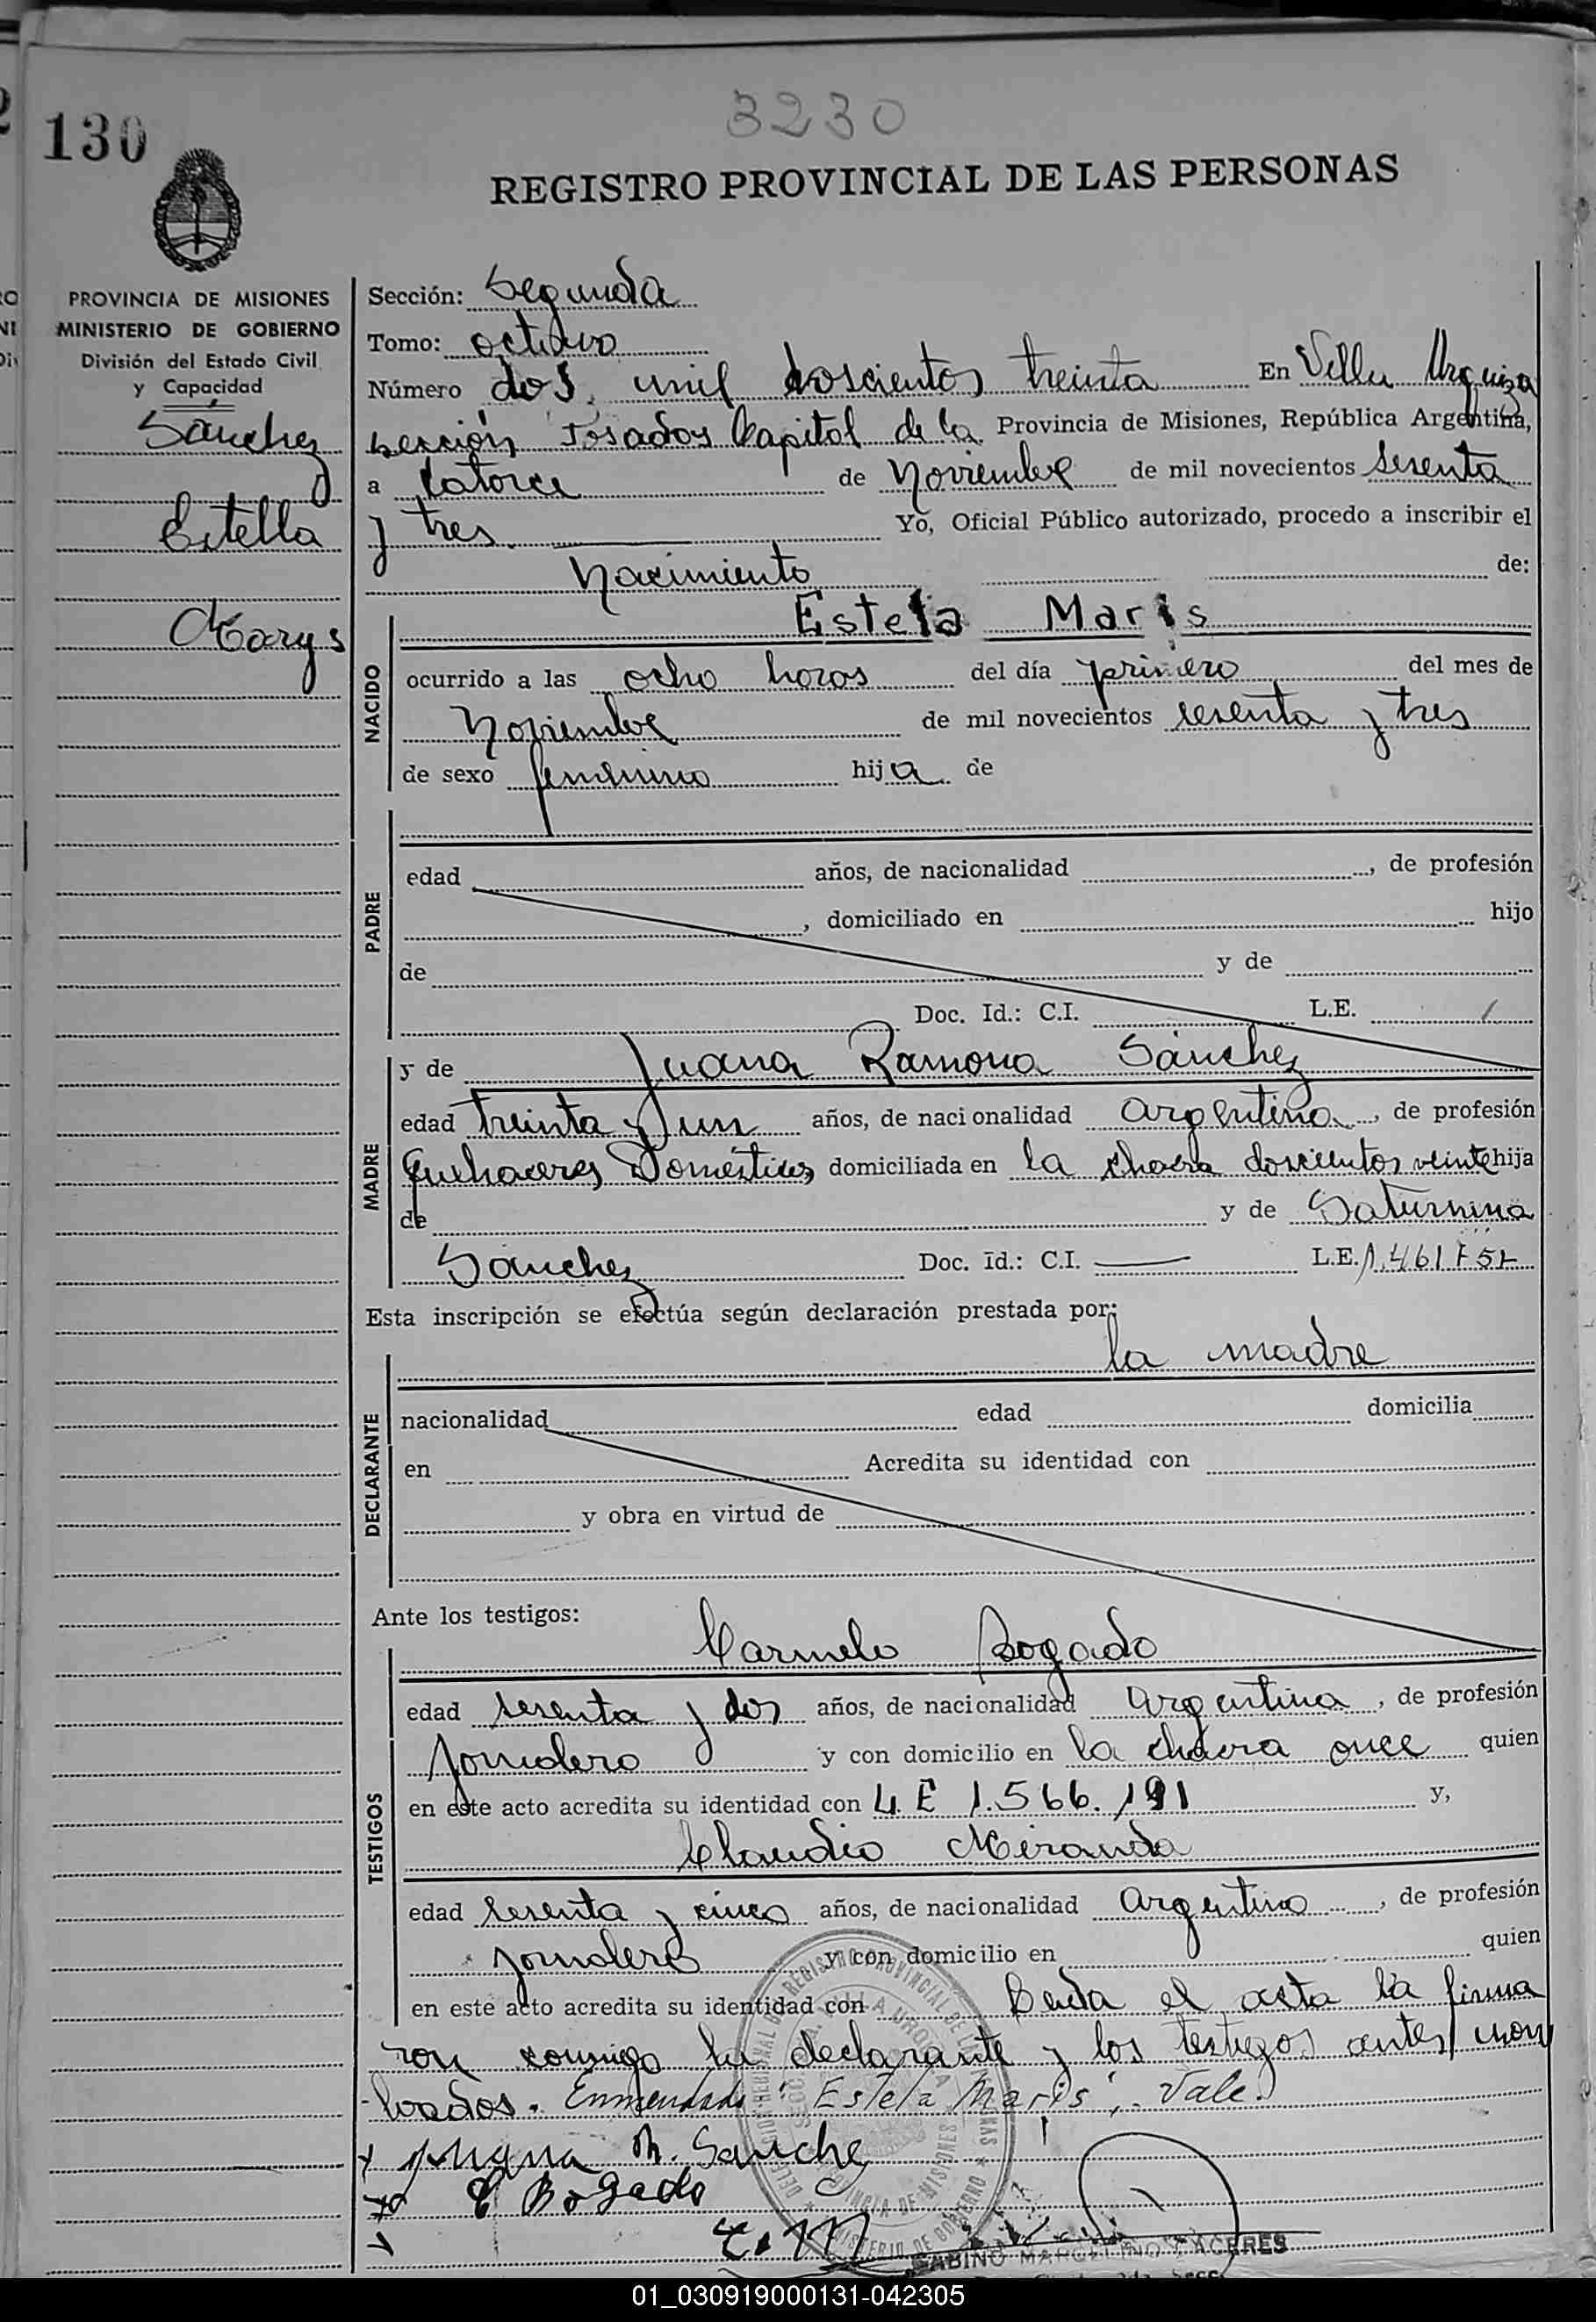 3230
130
REGISTRO PROVINCIAL DE LAS PERSONAS
PROVINCIA DE MISIONES
MINISTERIO DE GOBIERNO
División del Estado Civil
y Capacidad
Sánchez
Estella
Marys
Sección: Segunda
Tomo: octavo
Número dos mil doscientos treinta En Villa Urquiza
sección Posadas Capital de la Provincia de Misiones, República Argentina,
a catorce de Noviembre de mil novecientos sesenta
y tres Yo, Oficial Público autorizado, procedo a inscribir el
Nacimiento de:
NACIDO
Estela Maris
ocurrido a las ocho horas del día primero del mes de
Noviembre de mil novecientos sesenta y tres
de sexo femenino hija de
PADRE
edad años, de nacionalidad , de profesión
, domiciliado en hijo
de y de
Doc. Id.: C.I. L.E.
MADRE
y de Juana Ramona Sánchez
edad treinta y un años, de nacionalidad argentina, de profesión
Quehaceres Domésticos domiciliada en la chacra doscientos veinte hija
de y de Saturnina
Sánchez Doc. Id.: C.I. — L.E.
Esta inscripción se efectúa según declaración prestada por:
la madre
DECLARANTE
nacionalidad edad domicilia
en Acredita su identidad con
y obra en virtud de
Ante los testigos:
TESTIGOS
Carmelo Bogado
edad sesenta y dos años, de nacionalidad argentina, de profesión
Jornalero y con domicilio en la chacra once quien
en este acto acredita su identidad con L.E 1.566.191 y,
Claudio Miranda
edad sesenta y cinco años, de nacionalidad argentino, de profesión
jornalero y con domicilio en quien
en este acto acredita su identidad con Leida el acta la firma
ron conmigo la declarante y los testigos antes nom
brados. Enmendado "Estela Maris". Vale.
Juana R. Sanche
C Bogado
C. M
SABINO MARCELINO CACERES
01_030919000131-042305